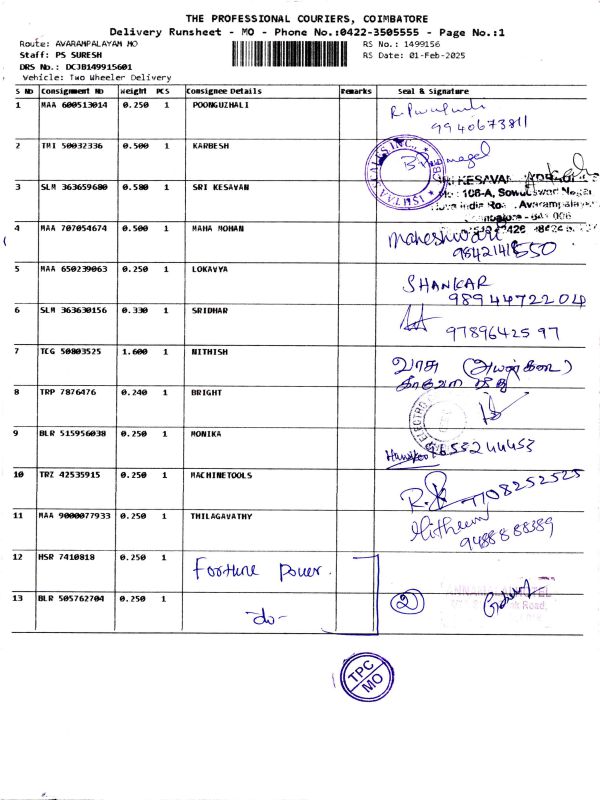 THE PROFESSIONAL COURIERS, COIMBATORE
Delivery Runsheet - MO - Phone No.:0422-3505555 - Page No.:1
Route: AVARAMPALAYAM MO RS No.: 1499156
Staff: PS SURESH RS Date: 01-Feb-2025
DRS No.: DCJB149915601
Vehicle: Two Wheeler Delivery
S No Consignment No Weight PCS Consignee Details Remarks Seal & Signature
1 MAA 600513014 0.250 1 POONGUZHALI
9940673811
2 TMI 50032336 0.500 1 KARBESH
3 SLM 363659680 0.580 1 SRI KESAVAN
SRI KESAVAN
4 MAA 707054674 0.500 1 MAHA MOHAN Maheshwari
5 MAA 650239063 0.250 1 LOKAVYA SHANKAR
9894472204
6 SLM 363630156 0.330 1 SRIDHAR
9789642597
7 TCG 50803525 1.600 1 NITHISH வாசு
8 TRP 7876476 0.240 1 BRIGHT
9 BLR 515956038 0.250 1 MONIKA
9655244453
10 TRZ 42535915 0.250 1 MACHINETOOLS
11 MAA 9000077933 0.250 1 THILAGAVATHY
9488888389
12 HSR 7410818 0.250 1 Fortune Power
13 BLR 505762704 0.250 1 -do- 2
TPC
MO